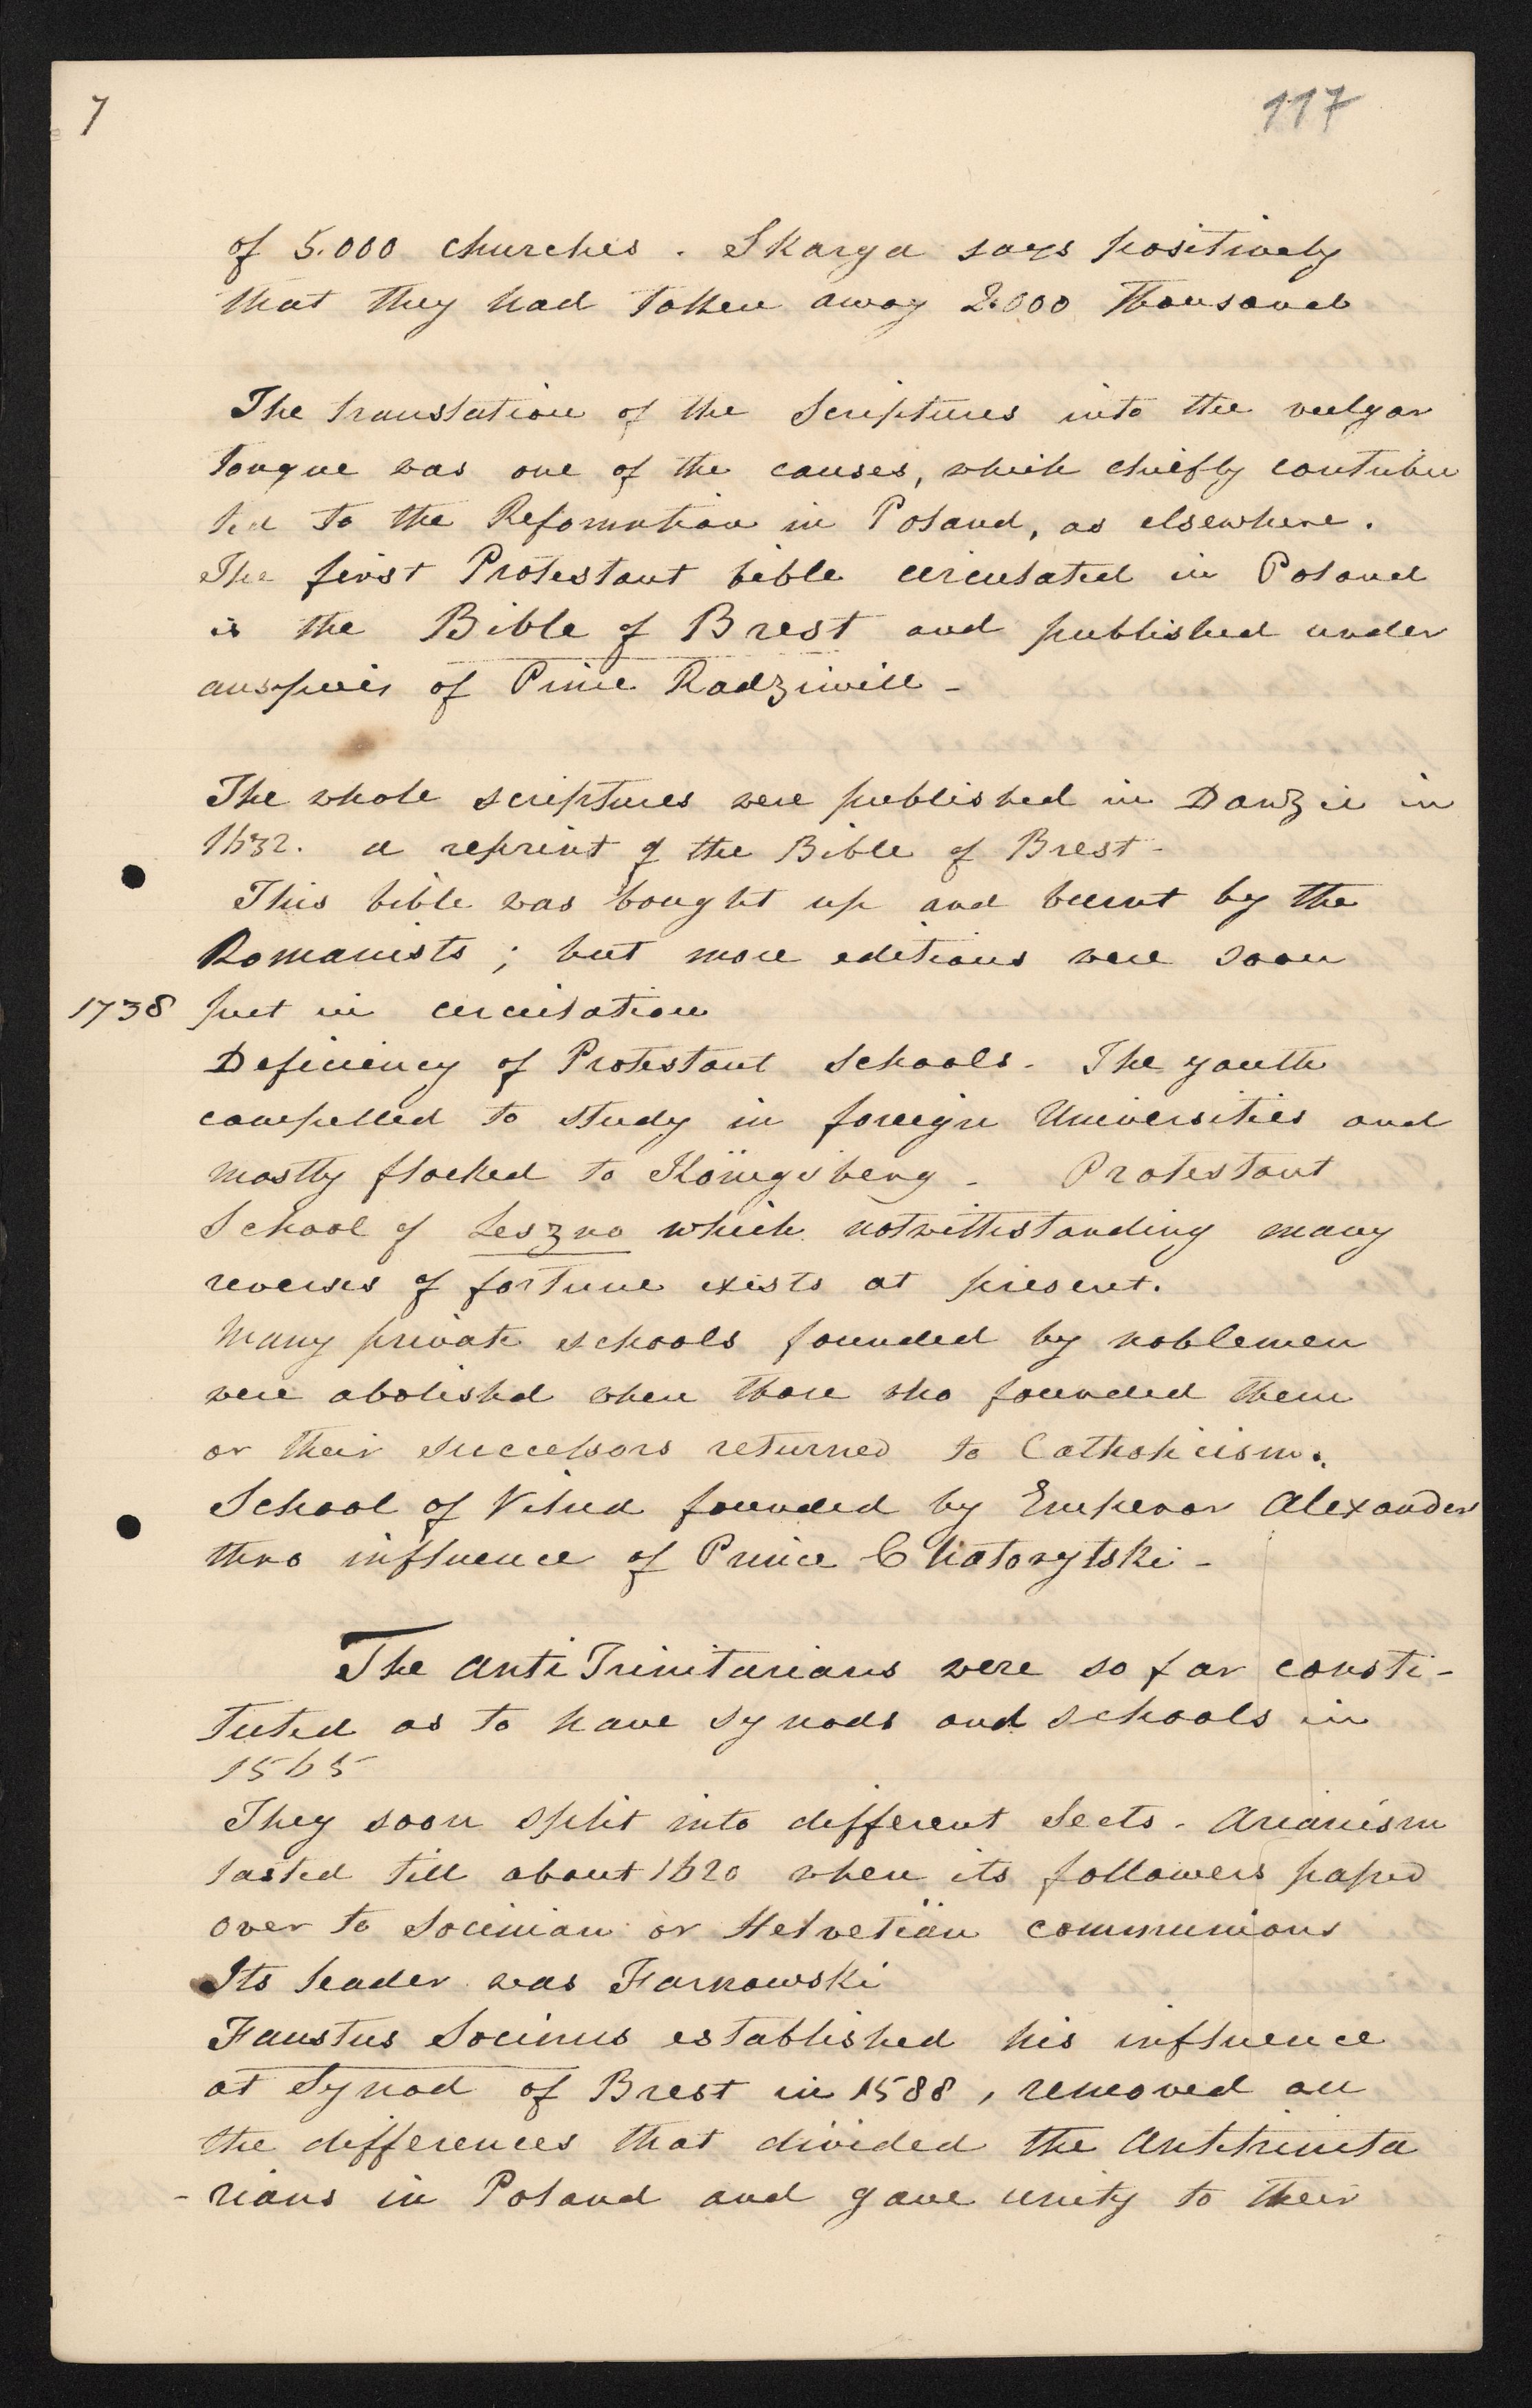 7
117
of 5.000 churches . Skarga says positively
that they had taken away 2.000 Thousand
The translation of the Scriptures into the vulgar
tongue was one of the causes, which chiefly contribu
ted to the Refomation in Poland, as elsewhere.
The first Protestant bible circulated in Poland
is the Bible of Brest and published under
auspices of Prince Radziwill -
The whole scriptures were published in Danzic in
1632. a reprint of the Bible of Brest -
This bible was bought up and burnt by the
Romanists ; but more editions were soon
1738 put in circulation
Deficiency of Protestant Schools - The youth
compelled to study in foreign Universities and
mostly flocked to Königsberg - Protestant
School of Leszno which notwithstanding many
reverses of fortune exists at present.
Many private schools founded by noblemen
were abolished when those who founded them
or their successors returned to Catholicism.
School of Vilna founded by Emperor Alexander
thro influence of Prince Chatorytski -
The Anti Trinitarians were so far consti-
tuted as to have synods and schools in
1565
They soon split into different Sects - Arianism
lasted till about 1620 when its followers passed
over to Socinian or Helvetian communions
Its leader was Farnowski
Faustus Socinus established his influence
at Synod of Brest in 1588 , removed all
the differences that divided the Antitrinita
- rians in Poland and gave unity to their